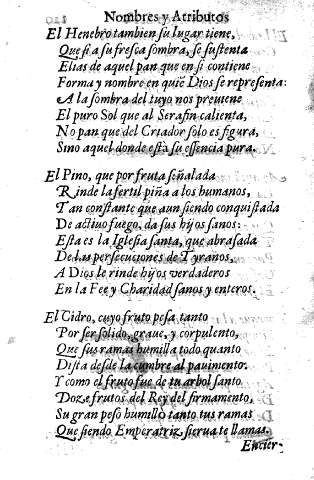 Nombres y Atributos
El Henebro tambien su lugar tiene,
Que si a su fresca sombra, se sustenta
Elias de aquel pan que en si contiene
Forma y nombre en quiē Dios se representa:
A la sombra del tuyo nos preuiene
El puro Sol que al Serafin calienta,
No pan que del Criador solo es figura,
Sino aquel donde està su essencia pura.
El Pino, que por fruta señalada
Rinde la fertil piña a los humanos,
Tan constante que aun siendo conquistada
De actiuo fuego, da sus hijos sanos:
Esta es la Iglesia santa, que abrasada
De las persecuciones de Tyranos,
A Dios le rinde hijos verdaderos
En la Fee y Charidad sanos y enteros.
El Cidro, cuyo fruto pesa tanto
Por ser solido, graue, y corpulento,
Que sus ramas humilla todo quanto
Dista desde la cumbre al pauimento.
Y como el fruto fue de tu arbol santo
Doze frutos del Rey del firmamento,
Su gran peso humillò tanto tus ramas
Que siendo Emperatriz, sierua te llamas.
Encier-